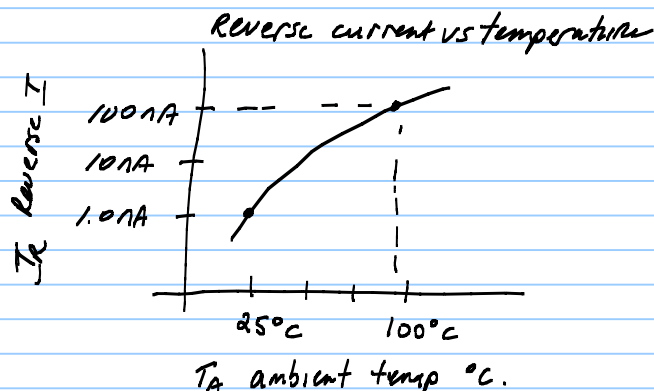 Reverse current vs temperature
I_R Reverse I
100nA
10nA
1.0nA
25°C
100°C
T_A ambient temp °C.